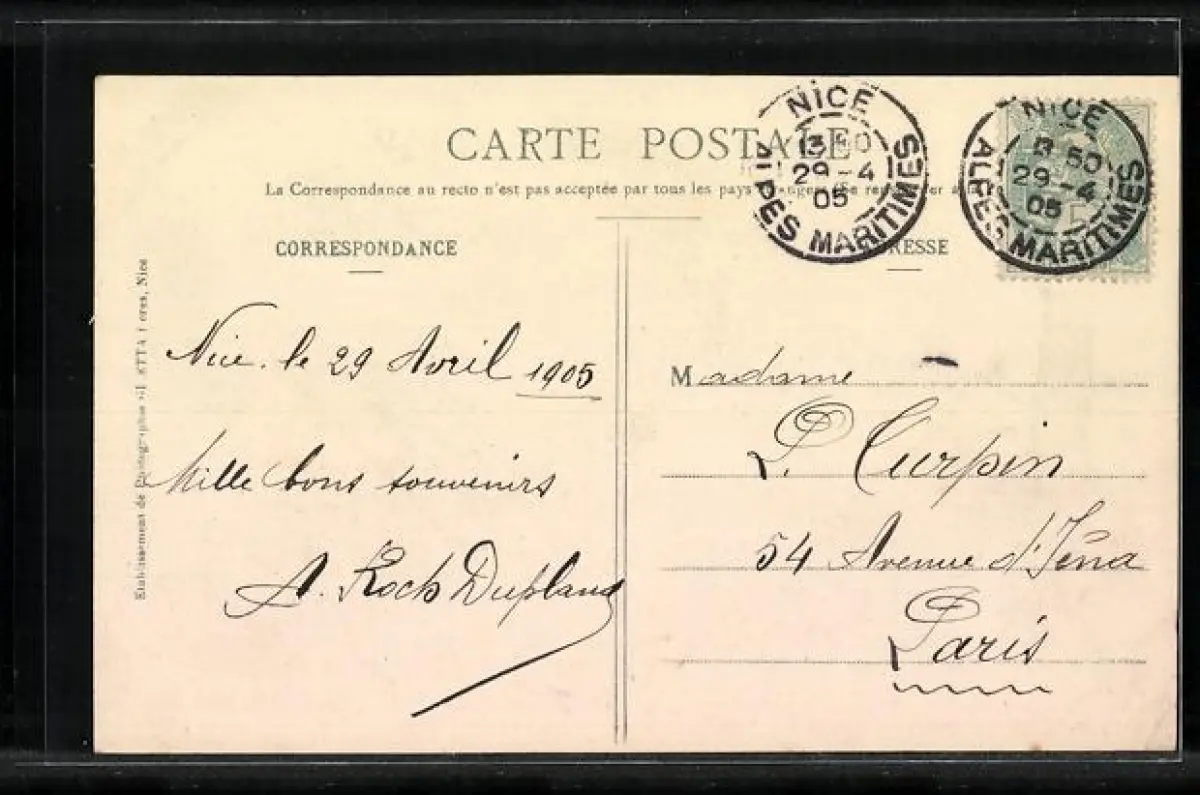 CARTE POSTALE
La Correspondance au recto n'est pas acceptée par tous les pays
CORRESPONDANCE
Nice. le 29 Avril 1905
Mille bons souvenirs
A. Roch Dupland
Etablissement de Photographie Nice
NICE
13 50
29-4
05
ALPES MARITIMES
NICE
50
29-4
05
ALPES MARITIMES
Madame
L. Curpin
54 Avenue d'Iéna
Paris